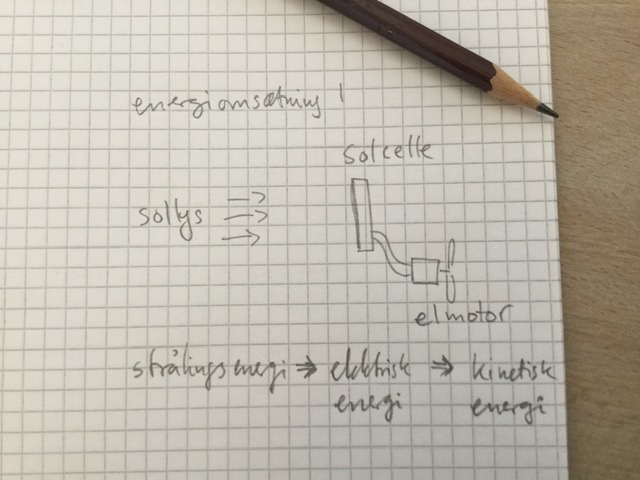 energiomsætning 1
solcelle
sollys
elmotor
strålingsenergi ⇒ elektrisk ⇒ kinetisk
energi energi